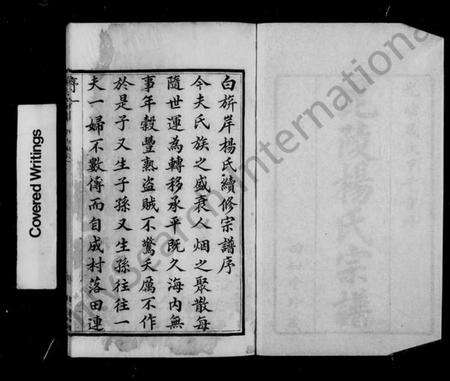 白旂岸楊氏續修宗譜序
今夫氏族之盛衰人烟之聚散每
隨世運為轉移承平既久海內無
事年穀豐熟盜賊不驚夭厲不作
於是子又生子孫又生孫往往一
夫一婦不數傳而自成村落田連
序
一
Covered Writings
Research International